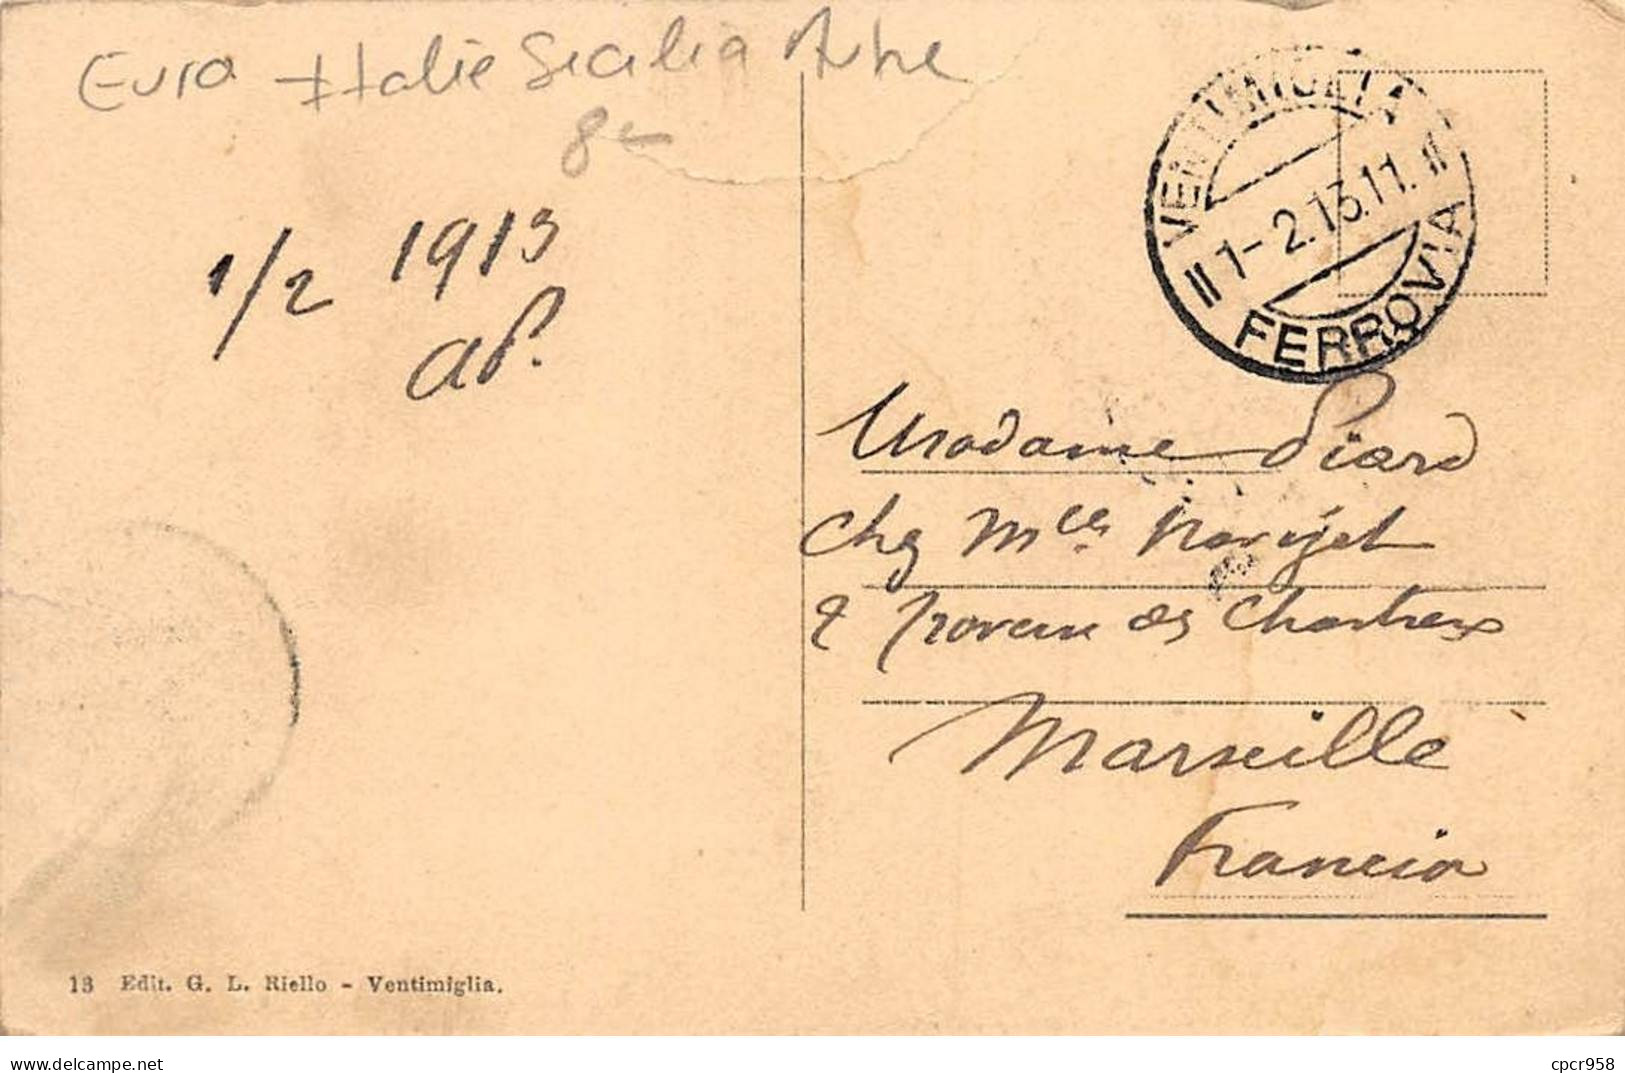 Euro Italie Sicilia Autre
8€
1/2 1913
VENTIMIGLIA
1-2.13.11.
FERROVIA
Madame Piard
chez Mlles
des Chartreux
Marseille
Francia
13 Edit. G. L. Riello - Ventimiglia.
delcampe.net
cpcr958